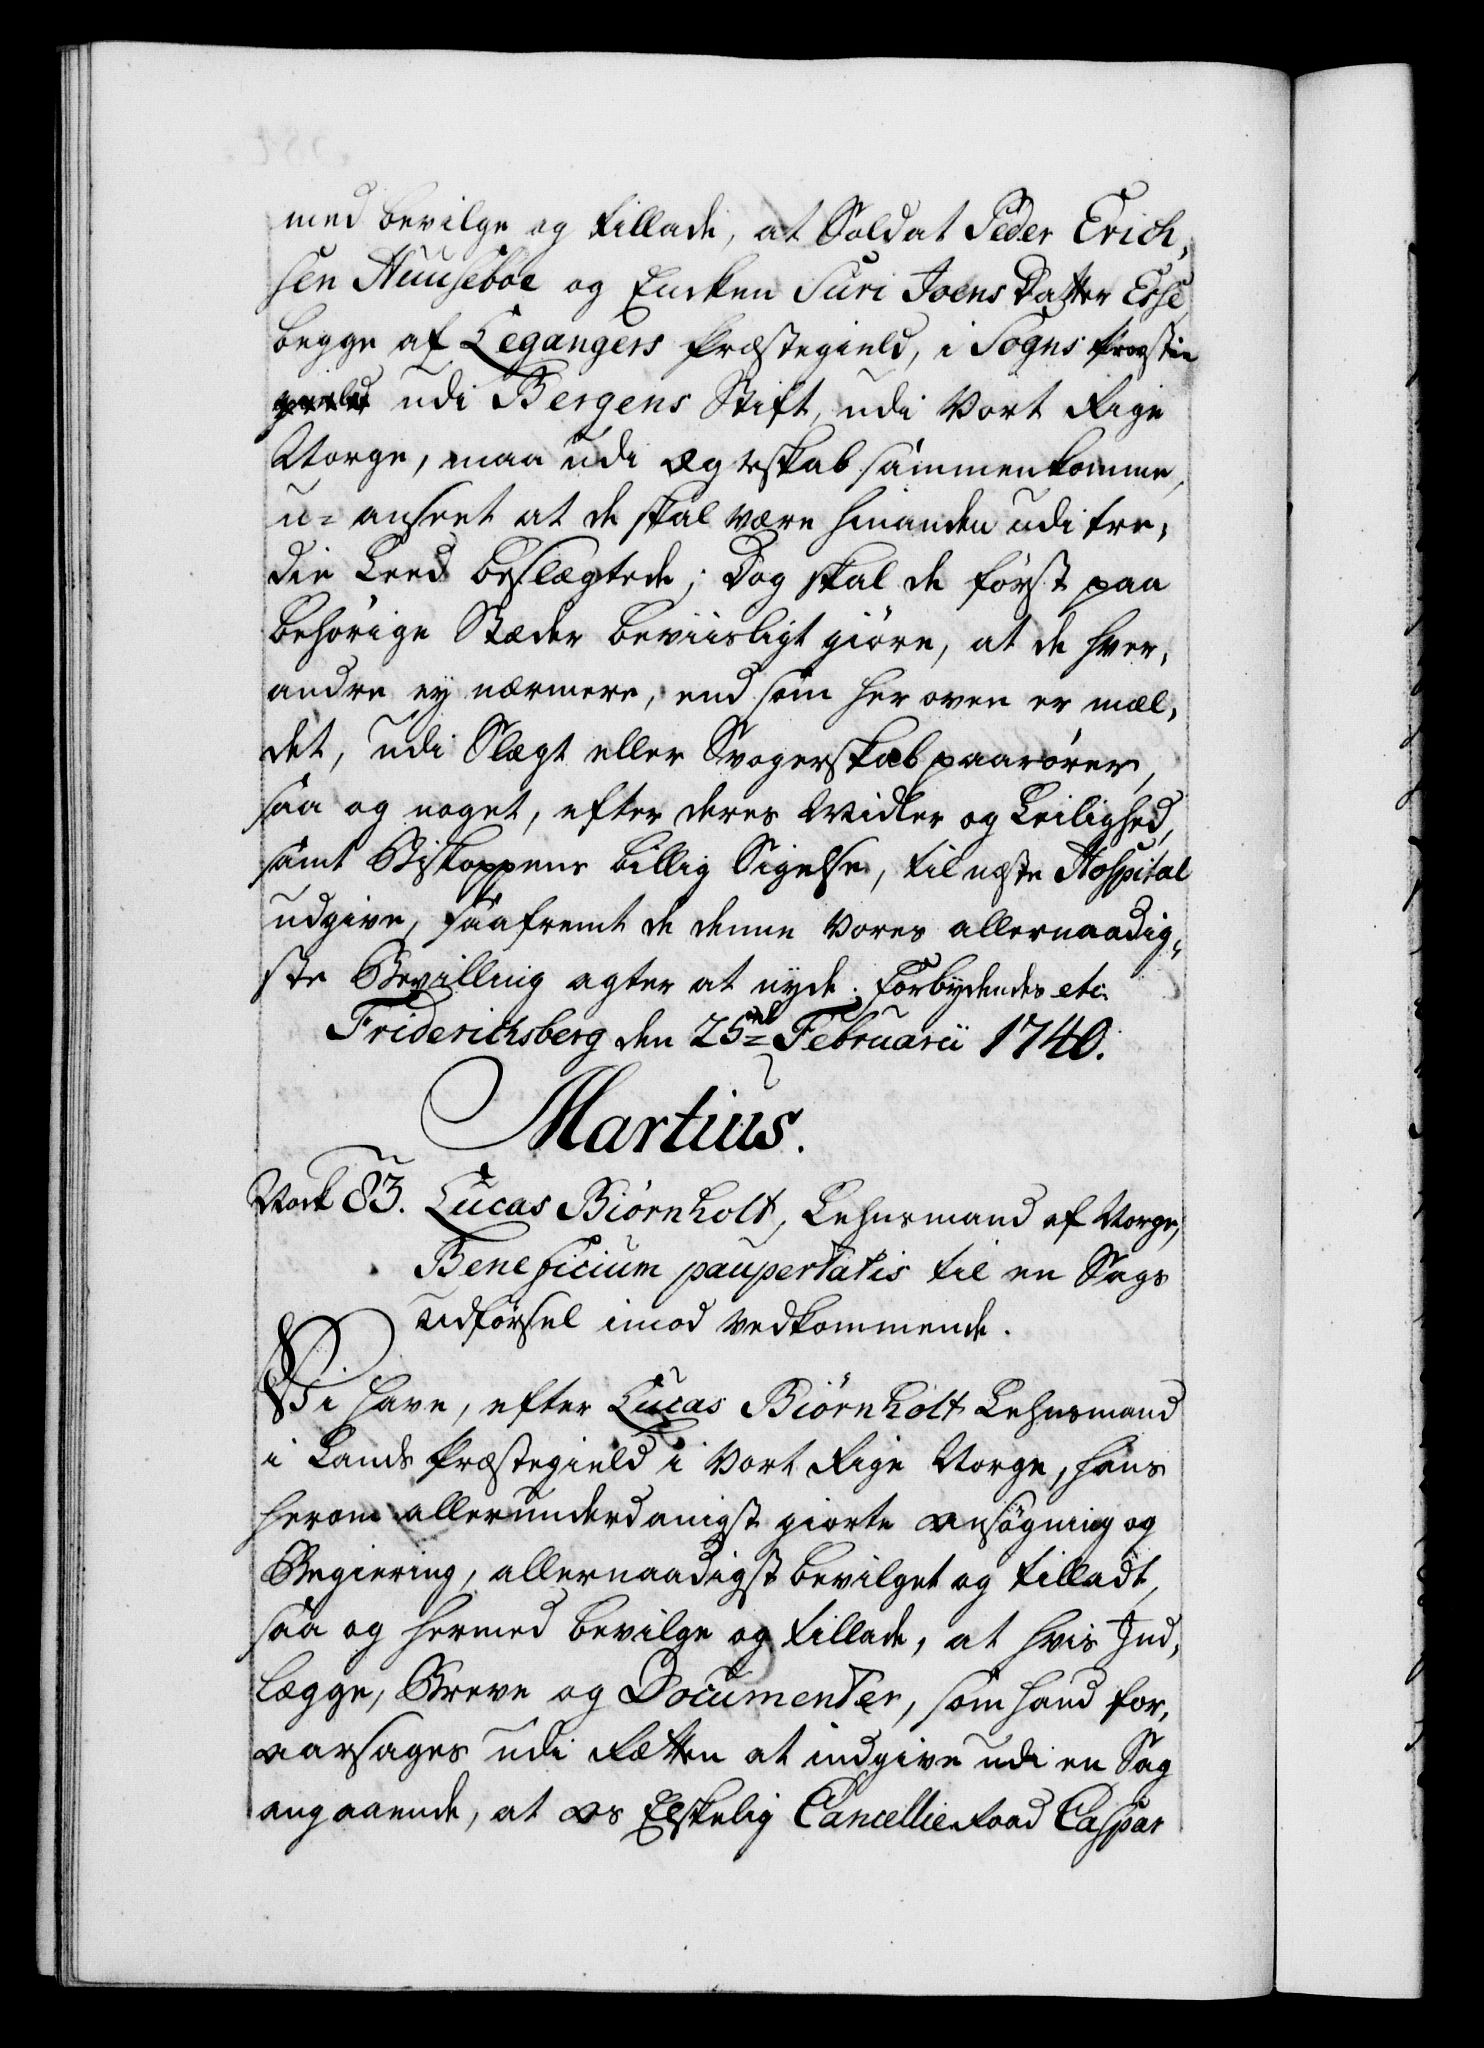 med bevilge og tillade, at Soldat Peder Erich,
sen Huuseboe og Encken Suri Joens Datter Esse
begge af Leganger's Præstegield, i Sogns Provstie
gield udi Bergens Stift, udi Vort Rige
Norge, maa udi Ægteskab sammenkomme,
u= anseet at de skal være hinanden udi tre,
die Leed beslægtede; Dog skal de først paa
behørige Stæder beviisligt giøre, at de hver,
andre ey nærmere, end som her oven er mæl,
det, udi Slægt eller Svogerskab paarører,
saa og noget, efter deres Midler og Leilighed,
samt Biskoppens billig Sigelse, til næste Hospital
udgive, saafremt de denne Vores allernaadig,
ste Bevilling agter at nyde. Forbydendes etc.
Friderichsberg den 25de Februarii 1740.
Martius.
No 83. Lucas Biørnholt, Lehnsmand af Norge,
Beneficium paupertatis til en Sags
Udførsel imod vedkommende.
Vi have, efter Lucas Biørnholt Lehnsmand
i Lands Præstegield i Vort Rige Norge, hans
herom allerunderdanigst giorte ansøgning og
Begiering, allernaadigst bevilget og tilladt,
saa og hermed bevilge og tillade, at hvis Ind,
lægge, Breve og Documenter, som hand for,
aarsages udi Rætten at indgive udi en Sag
angaaende, at os Elskelig Cancellie Raad Caspar